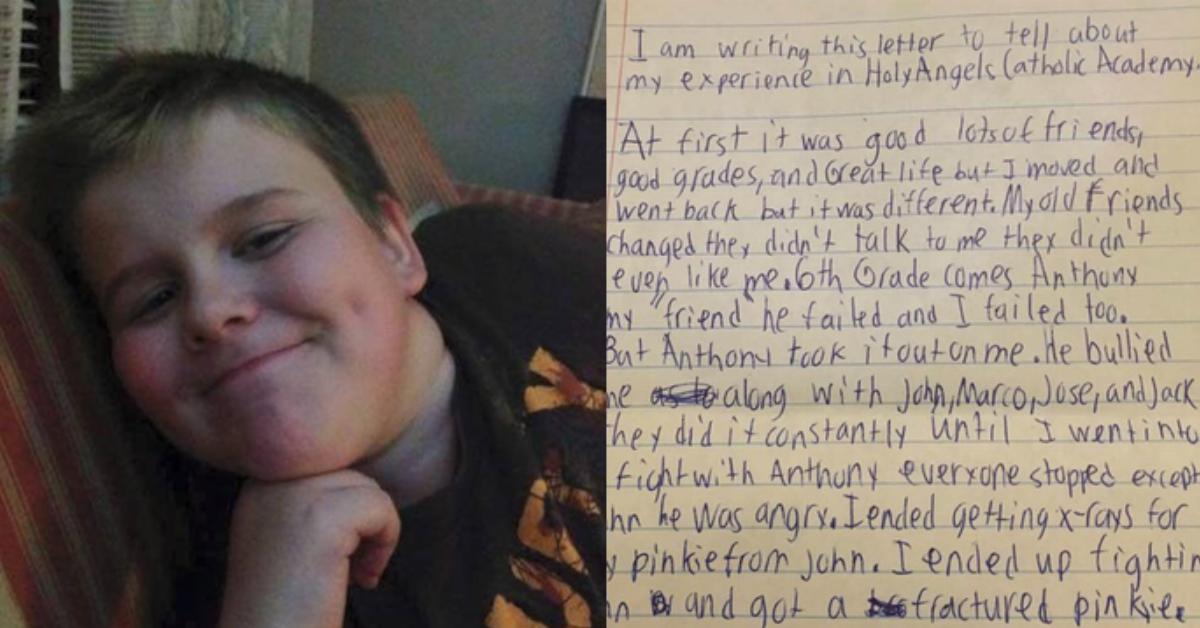 I am writing this letter to tell about
my experience in Holy Angels Catholic Academy.
At first it was good lots of friends,
good grades, and Great life but I moved and
went back but it was different. My old friends
changed they didn't talk to me they didn't
even like me. 6th Grade comes Anthony
my "friend" he failed and I failed too.
But Anthony took it out on me. He bullied
me along with John, Marco, Jose, and Jack
they did it constantly until I went into
fight with Anthony everyone stopped except
hn he was angry. I ended getting x-rays for
y pinkie from John. I ended up fightin
n and got a fractured pinkie.